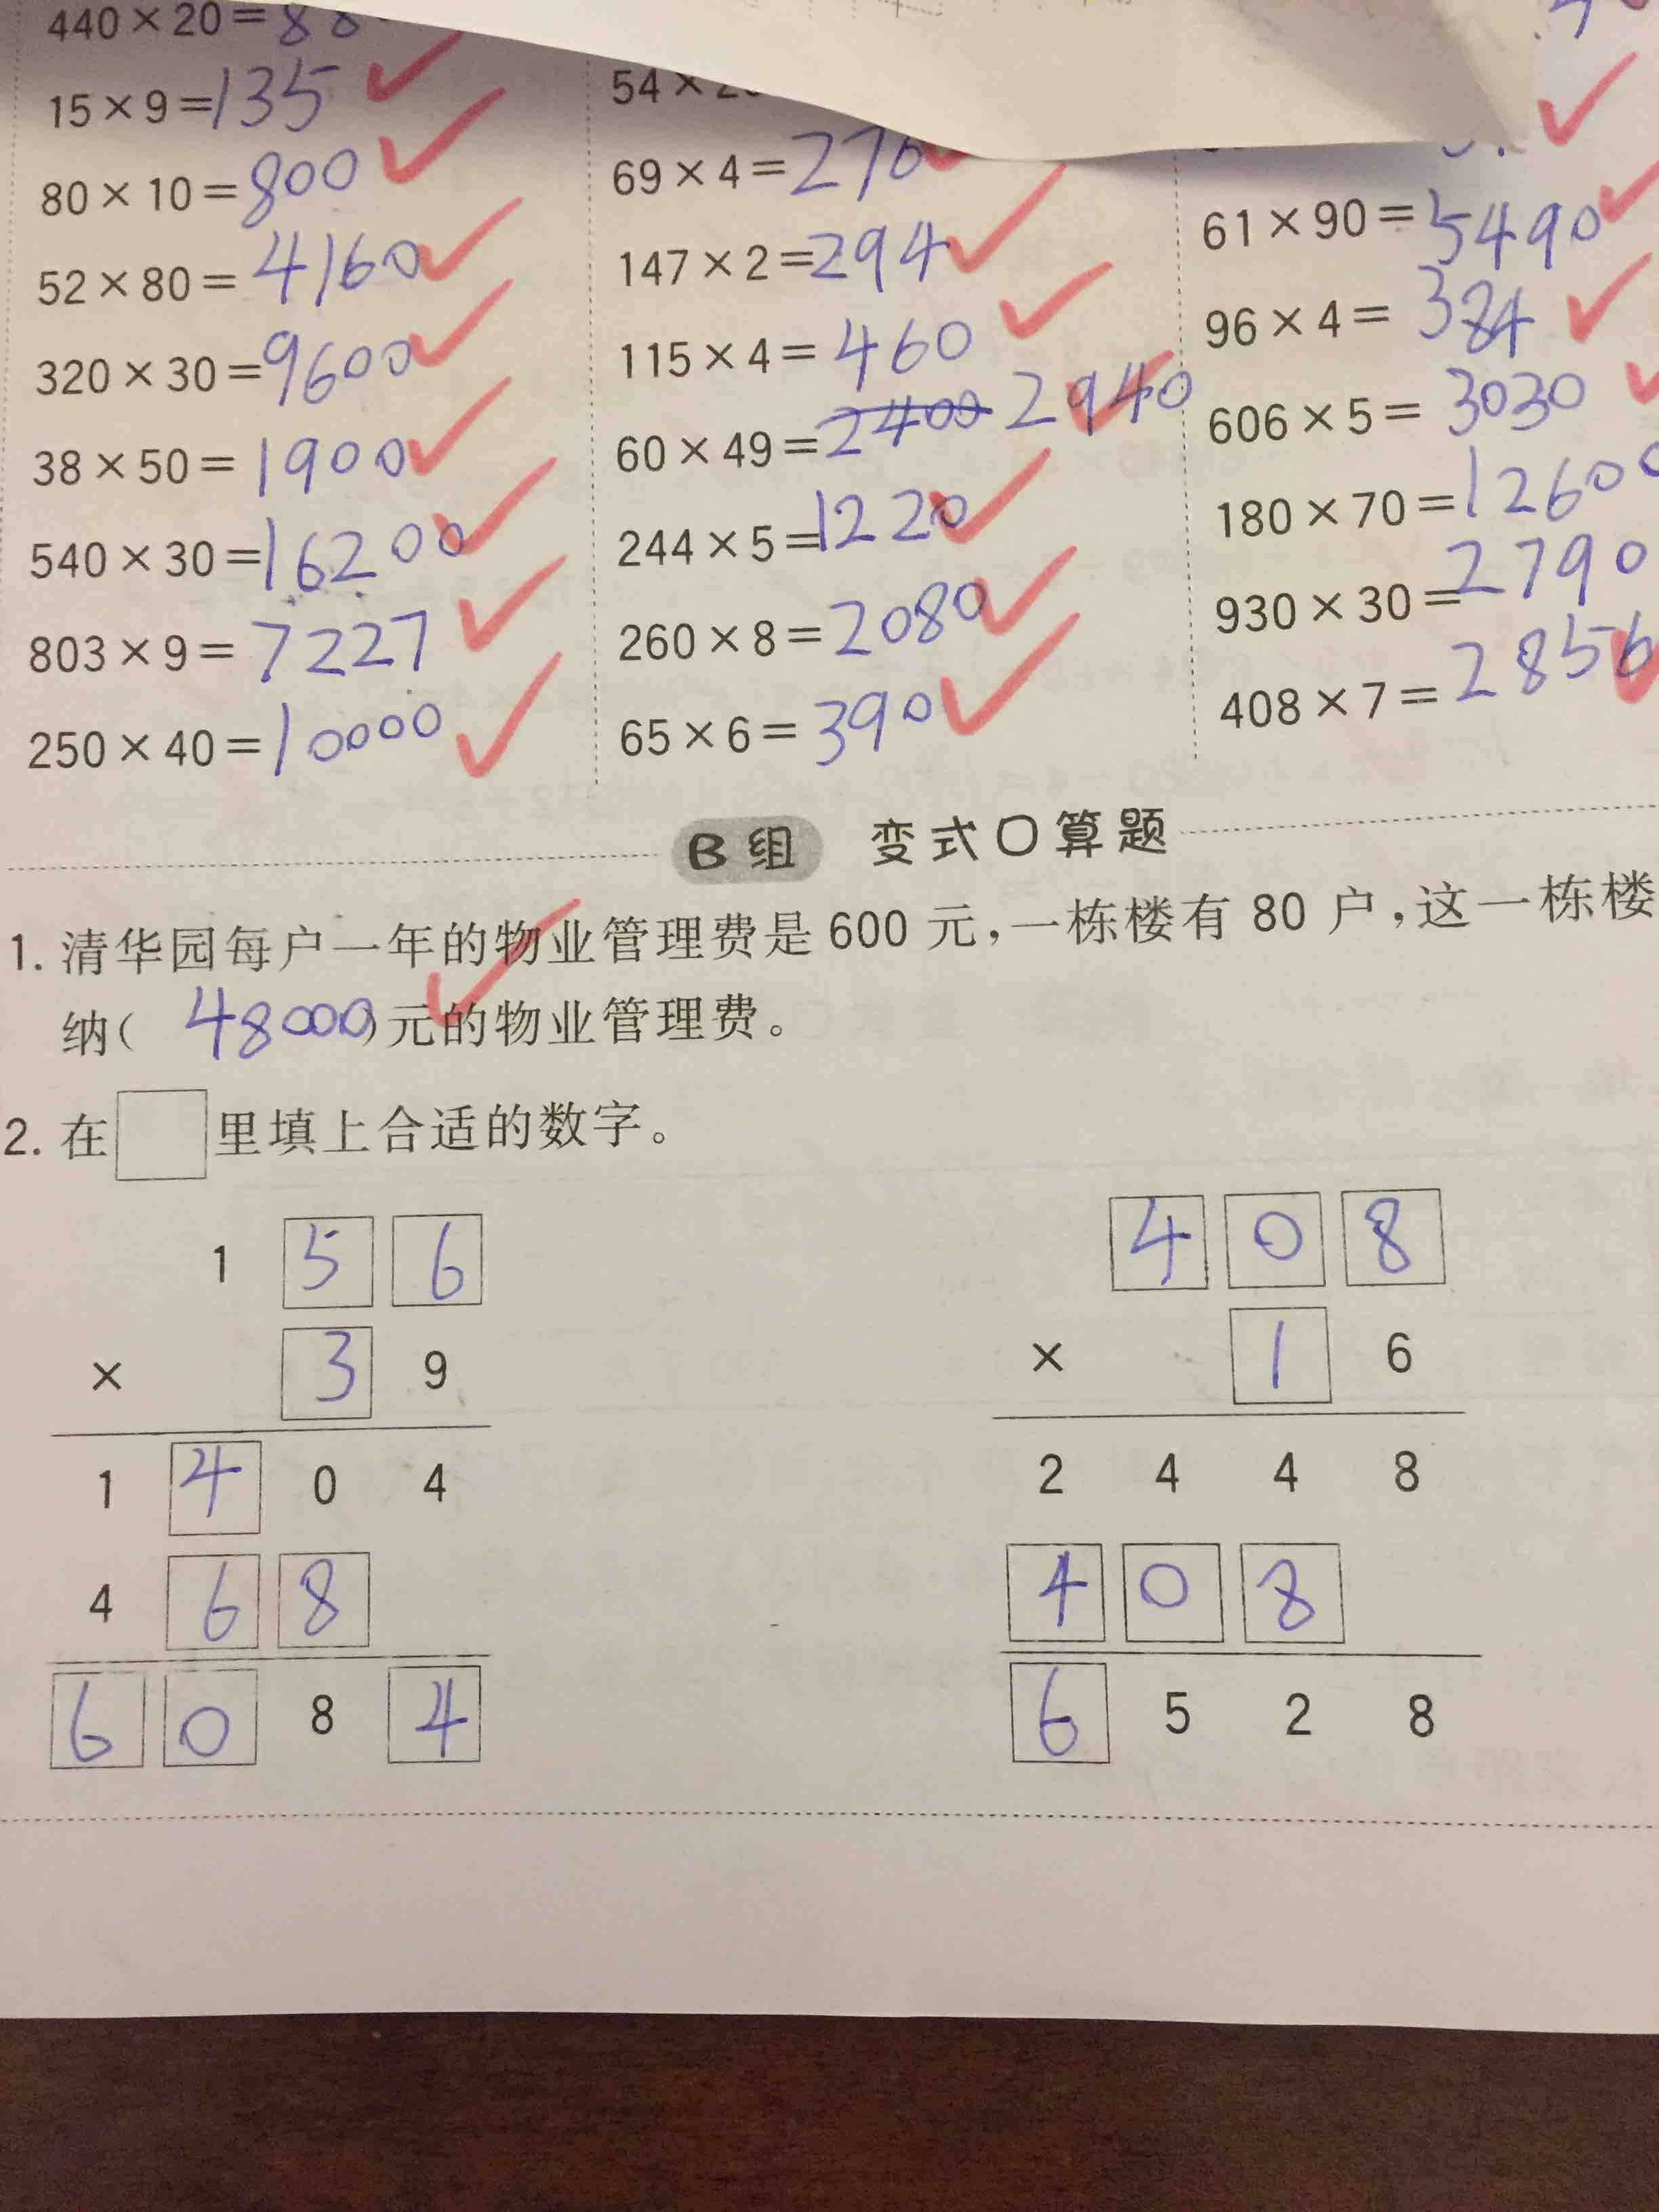 440×20=88
15×9=135
80×10=800
52×80=4160
320×30=9600
38×50=1900
540×30=16200
803×9=7227
250×40=10000
54×
69×4=276
147×2=294
115×4=460
60×49=2400 2940
244×5=1220
260×8=2080
65×6=390
61×90=5490
96×4=384
606×5=3030
180×70=12600
930×30=2790
408×7=2856
B组 变式口算题
1. 清华园每户一年的物业管理费是600元,一栋楼有80户,这一栋楼
纳(48000)元的物业管理费。
2. 在□里填上合适的数字。
1 5 6
× 3 9
1 4 0 4
4 6 8
6 0 8 4
4 0 8
× 1 6
2 4 4 8
4 0 8
6 5 2 8